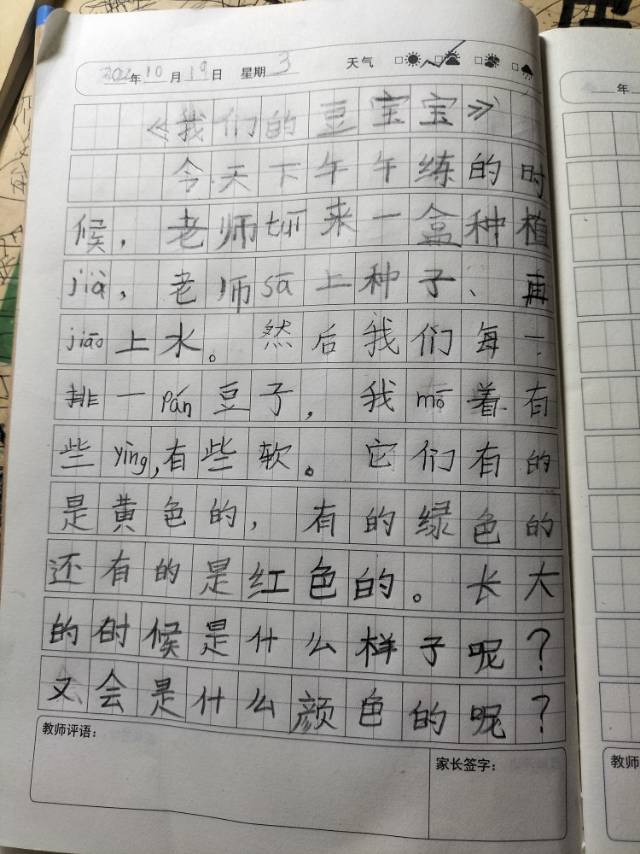 2022年10月19日 星期3 天气
《我们的豆宝宝》
今天下午午练的时
候，老师tuī来一盒种植
jià，老师sā上种子、再
jiāo上水。然后我们每一
排一pán豆子，我mō着有
些yìng，有些软。它们有的
是黄色的，有的绿色的
还有的是红色的。长大
的时候是什么样子呢？
又会是什么颜色的呢？
教师评语：
家长签字：
年
教师